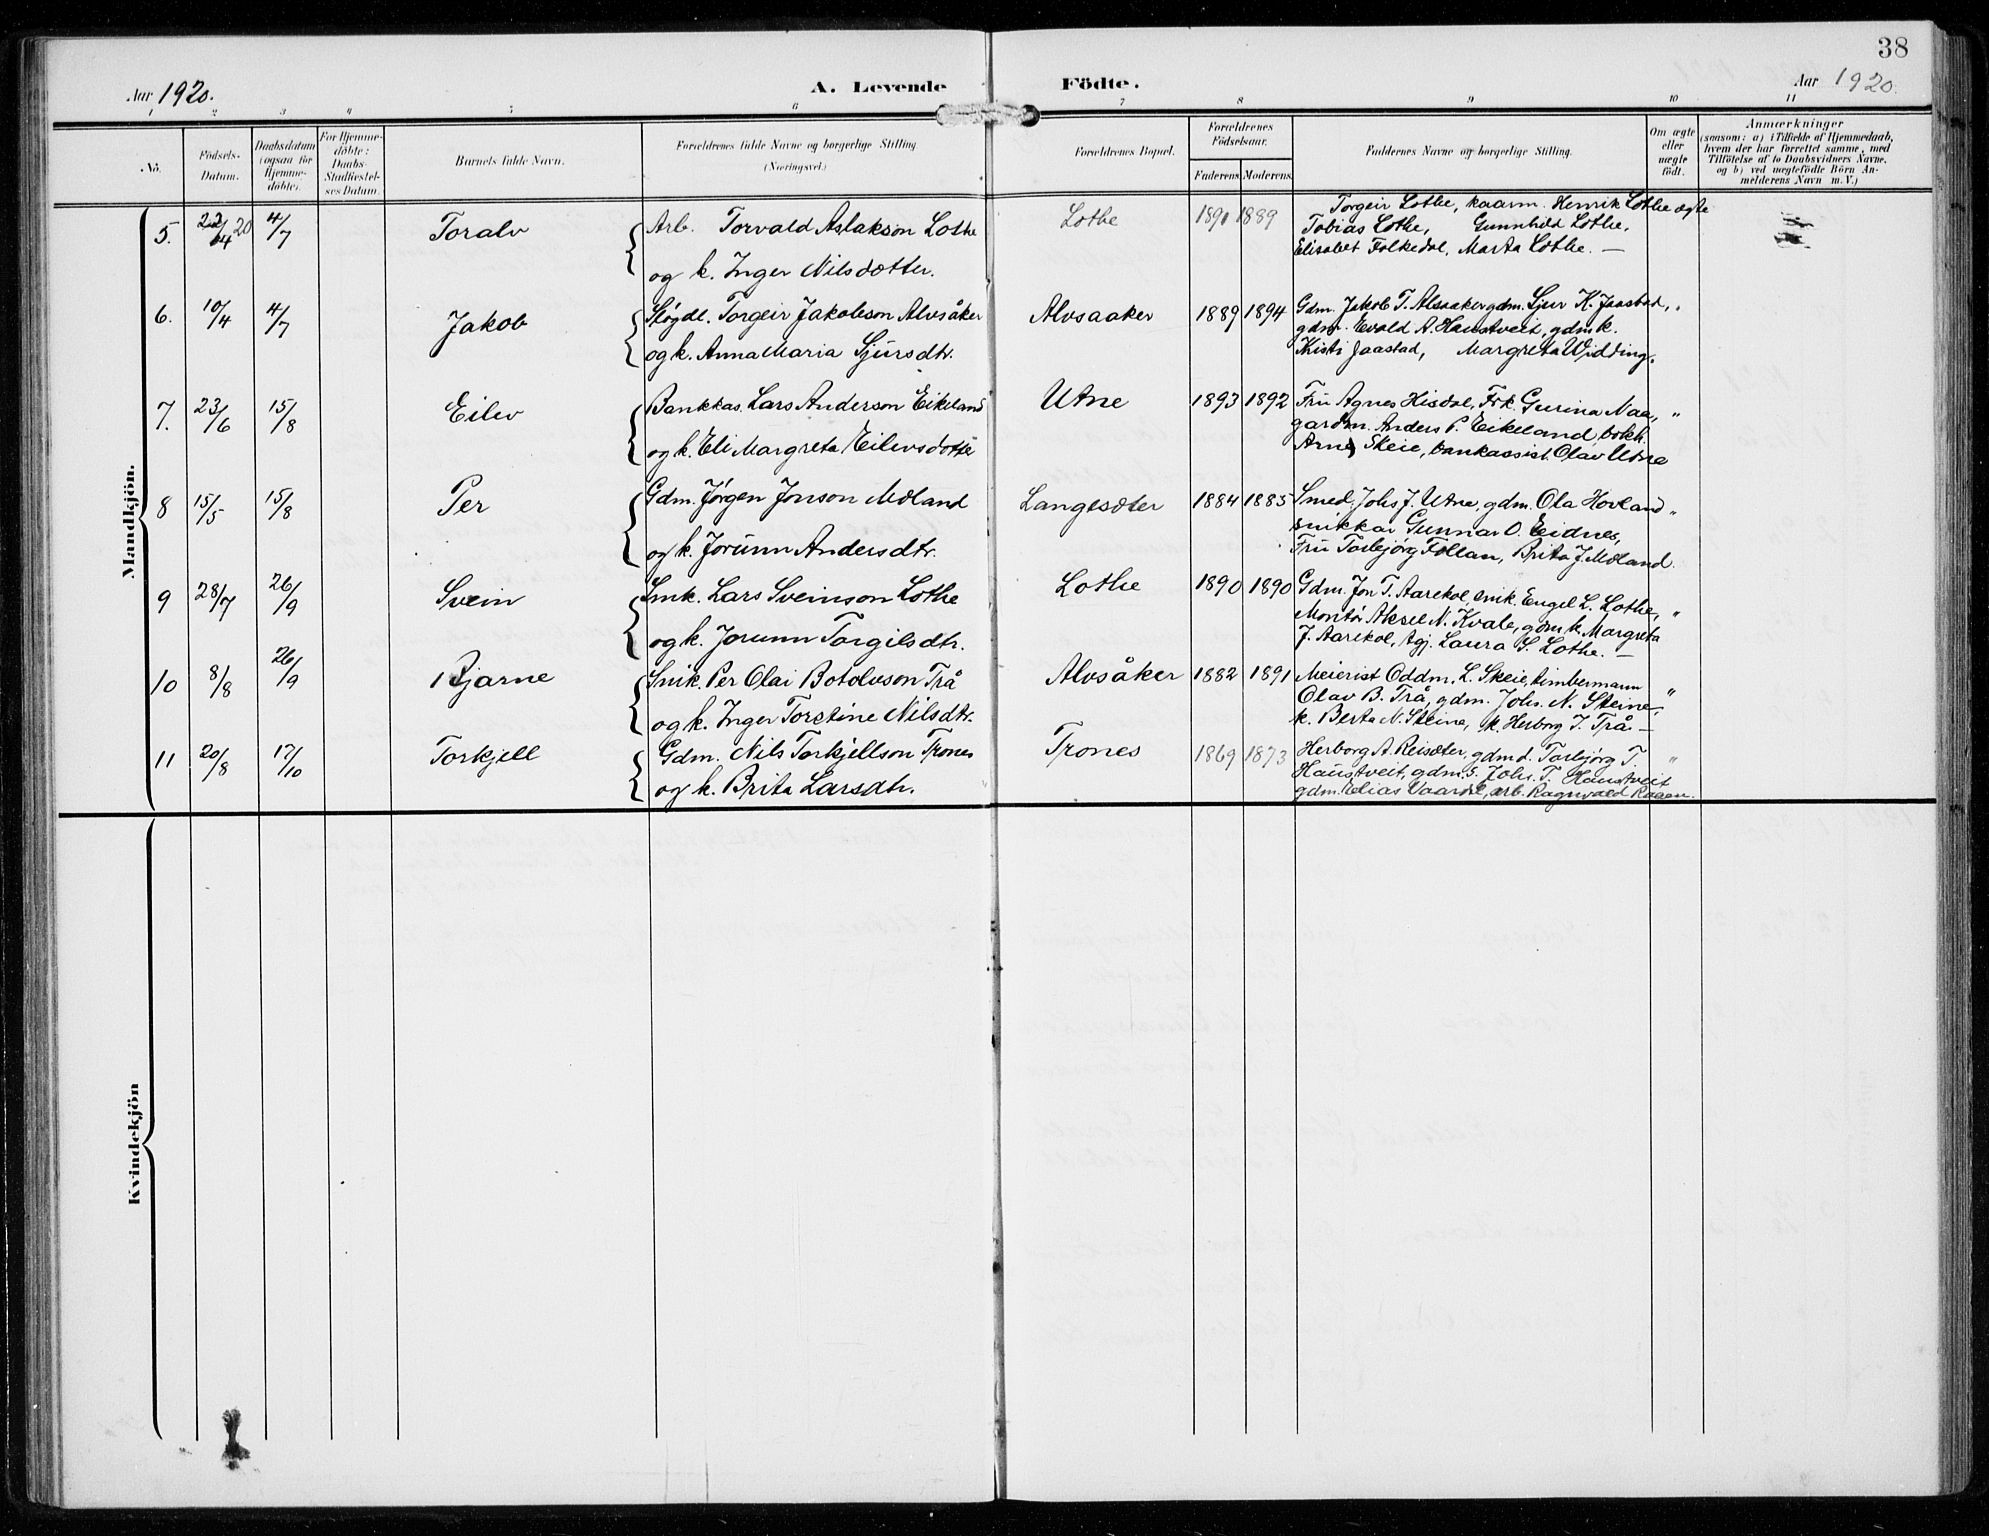 38
Aar 1920.
A. Levende
Födte.
Aar 1920.
1 2 3 4 5 6 7 8 9 10 11
No.
Födsels-Datum.
Daabsdatum (ogsaa for Hjemme-döbte).
For Hjemme-döbte: Daabs-Stadfæstel-ses Datum.
Barnets fulde Navn.
Forældrenes fulde Navne og borgerlige Stilling (Næringsvei.)
Forældrenes Bopæl.
Forældrenes Födselsaar.
Faderens. Moderens.
Faddernes Navne og borgerlige Stilling.
Om ægte eller uægte födt.
Anmærkninger
(saasom: a) i Tilfælde af Hjemmedaab,
hvem der har forrettet samme, med
Tilföielse af to Daabsvidners Navne,
og b) ved uægtefödte Börn An-
melderens Navn m. V.)
Mandkjön.
5. 22/4 20 4/7 Toralv Arb. Torvald Aslakson Lothe Lothe 1890 1889 Torgeir Lothe, kaarm. Henrik Lothe ægte
Tobias Lothe, Gunnhild Lothe,
og k. Inger Nilsdotter. Elisabet Folkedal, Marta Lothe. —
6. 10/4 4/7 Jakob Sløgdl. Torgeir Jakobson Alvsåker Alvsaaker 1889 1894 Gdm. Jakob T. Alsaaker gdm. Sjur K. Jaastad, "
gdm. Evald A. Haustveit, gdm k.
og k. Anna Maria Sjursdtr. Kristi Jaastad, Margreta Widding.
7. 23/6 15/8 Eilev Bankkas. Lars Anderson Eikeland Utne 1893 1892 Fru Agnes Hisdal, Frk. Gurina Naa, "
gardm. Anders P. Eikeland, bokh.
og k. Eli Margreta Eilevsdotter Arne Skeie, bankassist. Olav Utne
8 15/5 15/8 Per Gdm. Jørgen Jonson Mæland Langesæter 1884 1885 Smed Johs J. Utne, gdm. Ola Hovland "
snikkar Gunnar O. Eidnes,
og k. Jorunn Andersdtr. Fru Torbjørg Follan, Brita J. Mæland.
9 28/7 26/9 Svein Snik. Lars Sveinson Lothe Lothe 1890 1890 Gdm. Jon T. Aarekol, snik. Engel L. Lothe, "
Montør Aksel N. Kvale, gdm k. Margreta
og k. Jorunn Torgilsdtr. J. Aarekol, Ugj. Laura S. Lothe. —
10 8/8 26/9 Bjarne Snik. Per Olai Botolvson Trå Alvsåker 1882 1891 Meierist Oddm. L. Skeie, timbermann "
Olav B. Trå, gdm. Johs. N. Steine,
og k. Inger Torstine Nilsdtr. k. Berta N. Steine, k Herborg J. Trå —
11 20/8 17/10 Torkjell Gdm. Nils Torkjellson Trones Trones 1869 1873 Herborg A. Reisæter, gdm d. Torbjørg T. "
Haustveit, gdm. s. Johs. T. Haustveit
og k. Brita Larsdtr. gdm. Elias Vaardal, arb. Ragnvald Raaen.
Kvindekjön